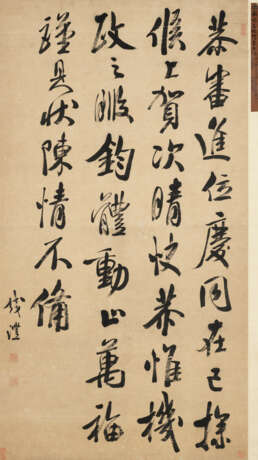 恭審進位慶同在己操
候上賀次晴快恭惟機
政之暇鈞體動止萬福
謹具狀陳情不備
錢灃